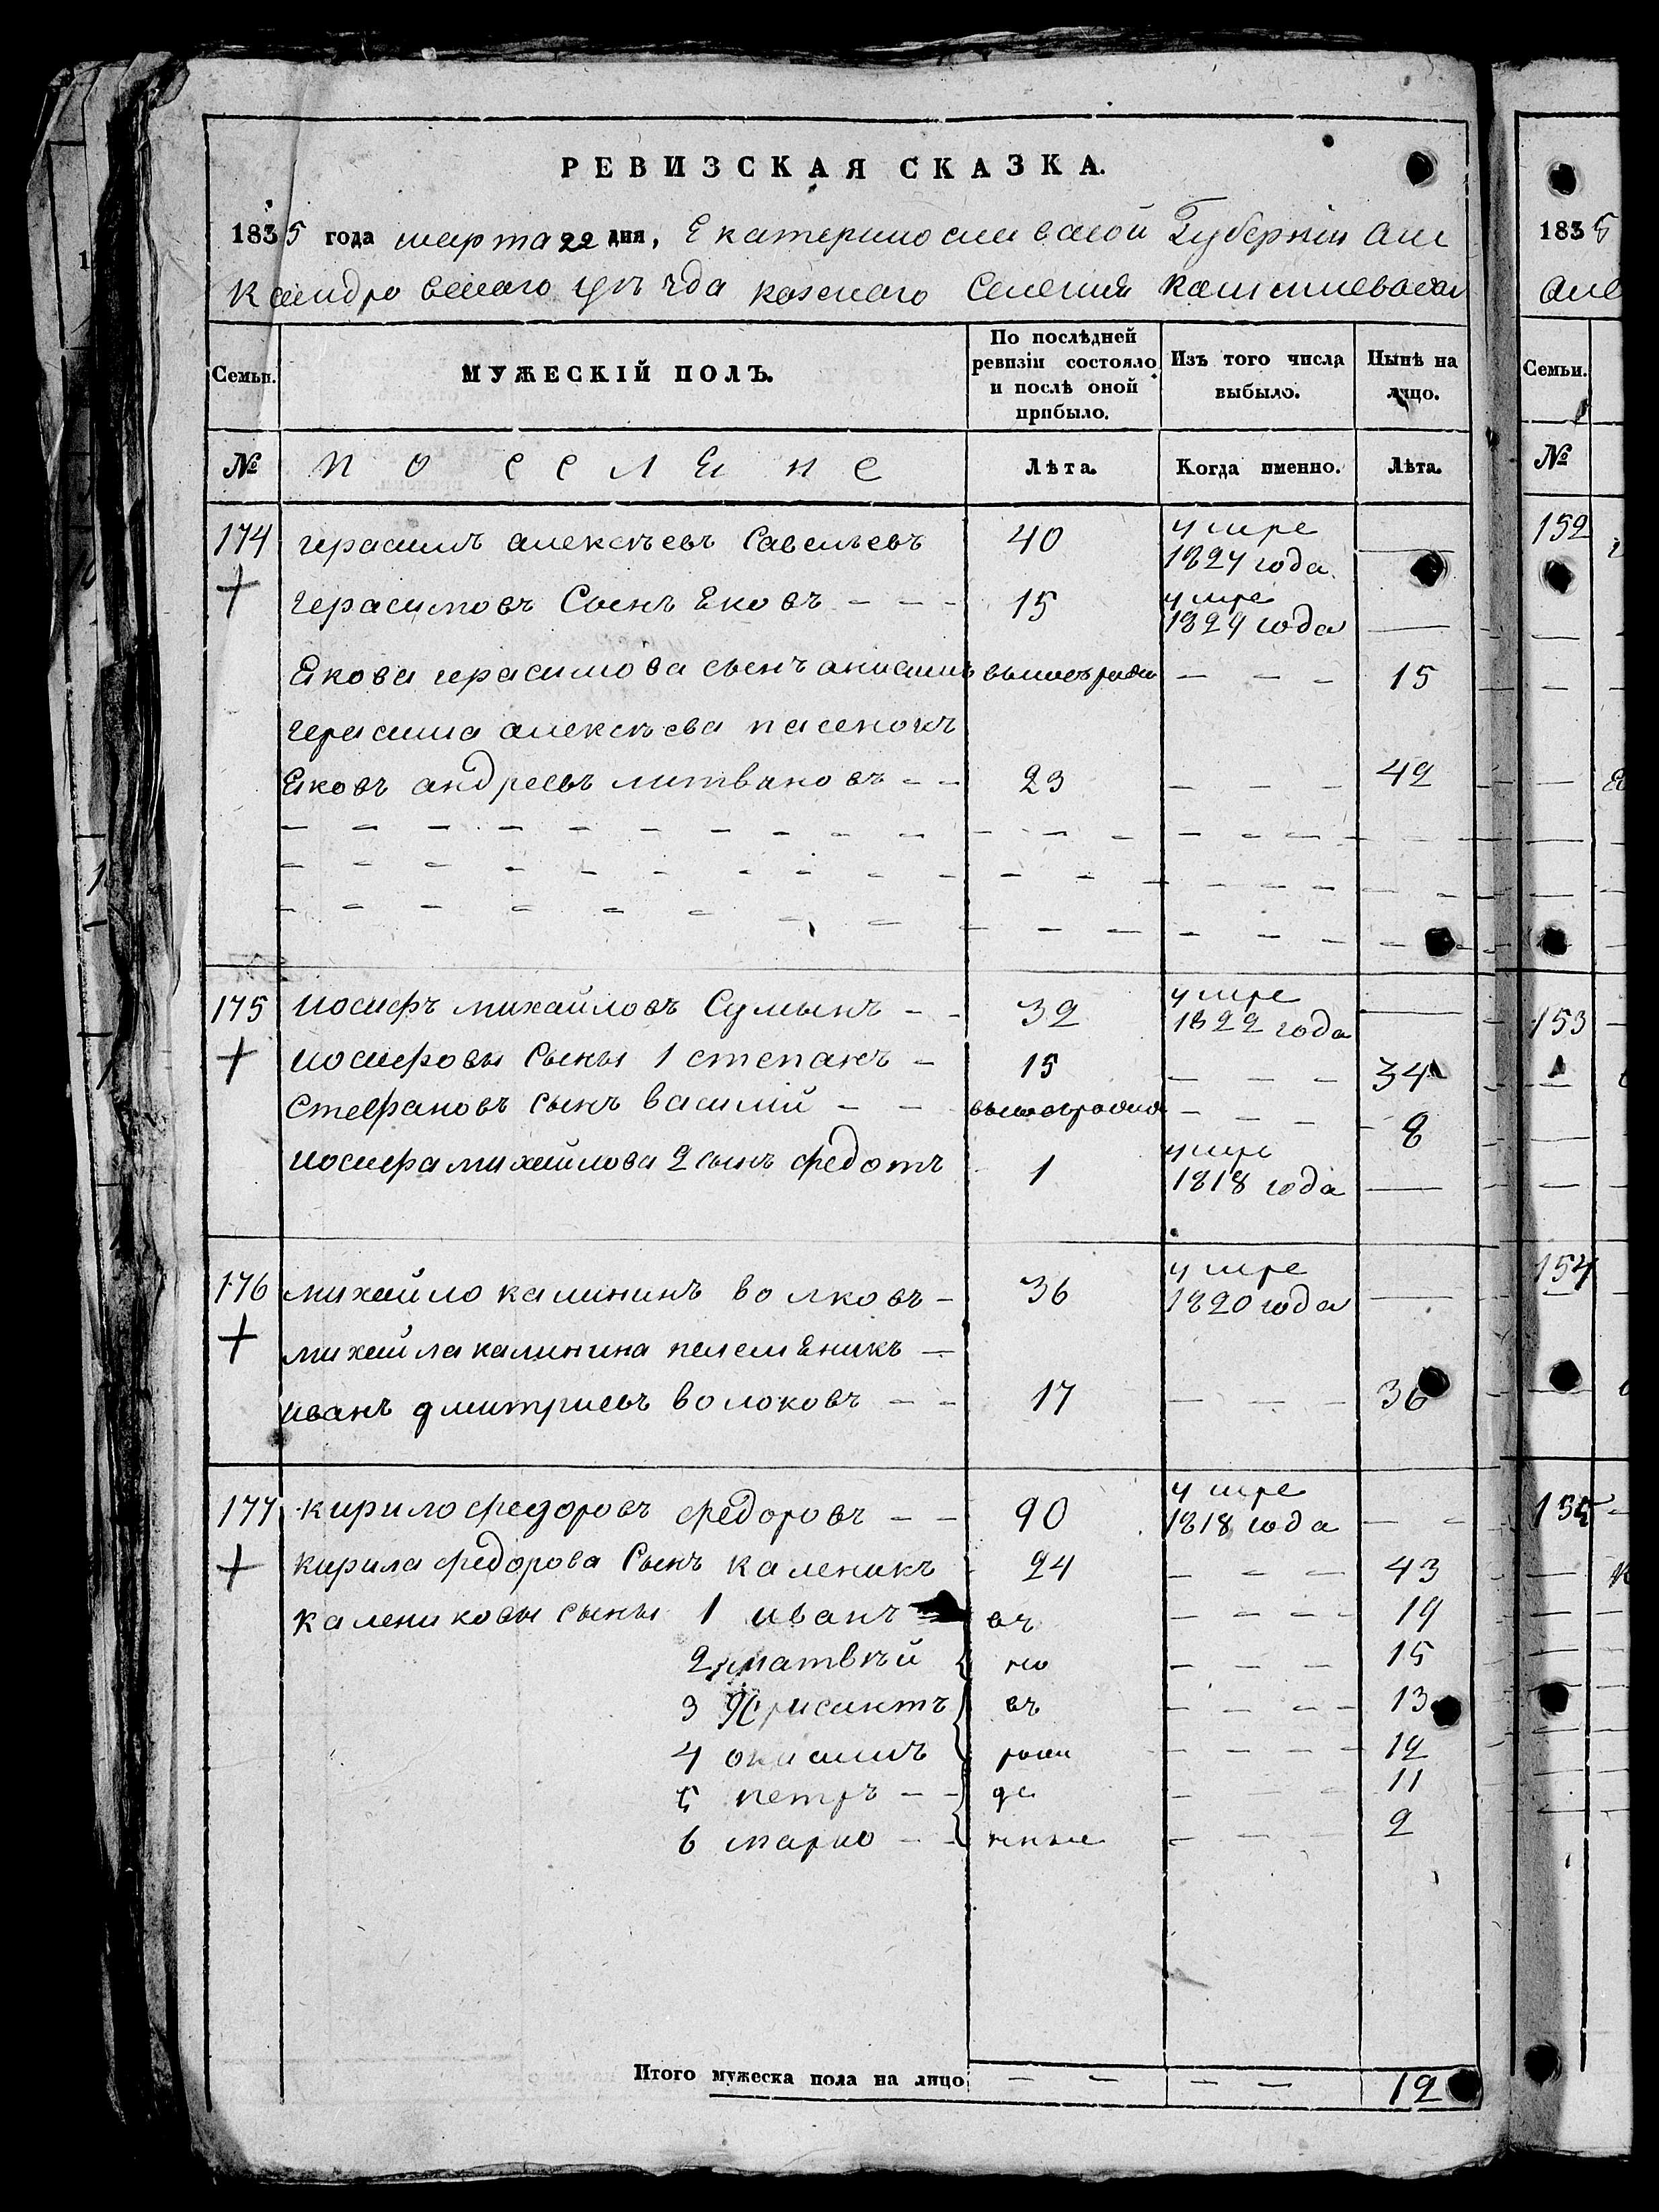 РЕВИЗСКАЯ СКАЗКА.
1835 года марта 22 дня, Екатеринославской Губерніи Але
ксандровскаго уѣзда казенаго Селения
Семьи.
МУЖЕСКІЙ ПОЛЪ.
По послѣдней ревизіи состояло и послѣ оной прибыло.
Изъ того числа выбыло.
Нынѣ на лицо.
№
поселяне
Лѣта.
Когда именно.
Лѣта.
174 герасимъ алексѣевъ Савельевъ 40 умре 1827 года —
+ герасимовъ Сынъ Яковъ - - - 15 умре 1829 года —
Якова герасимова сынъ анисимъ - - - 15
герасима алексѣева пасенокъ
Яковъ андреевъ литвиновъ - - 23 - - - 42
175 иосифъ михайловъ Сумынъ - - 32 умре 1822 года —
+ иосифовы Сыны 1 степанъ - 15 - - - 34
Стефановъ сынъ василий - - - - - 8
иосифа михайлова 2 сынъ федотъ 1 умре 1818 года —
176 михайло калининъ волковъ - 36 умре 1820 года —
+ михайла калинина племяникъ —
иванъ дмитриевъ волоковъ - - 17 - - - 36
177 кирило федоровъ федоровъ - - 90 умре 1818 года - -
+ кирила федорова Сынъ каленикъ 24 - - - 43
калениковы сыны 1 иванъ въ - - - - 19
2 матвѣй но - - - 15
3 Хрисантъ въ - - - - 13
4 онисимъ рож - - - - 12
5 петръ - - де - - - 11
6 марко - - нные - - - 2
Итого мужеска пола на лицо - - - - 12
1835
Але
Семьи.
№
152
153
154
155